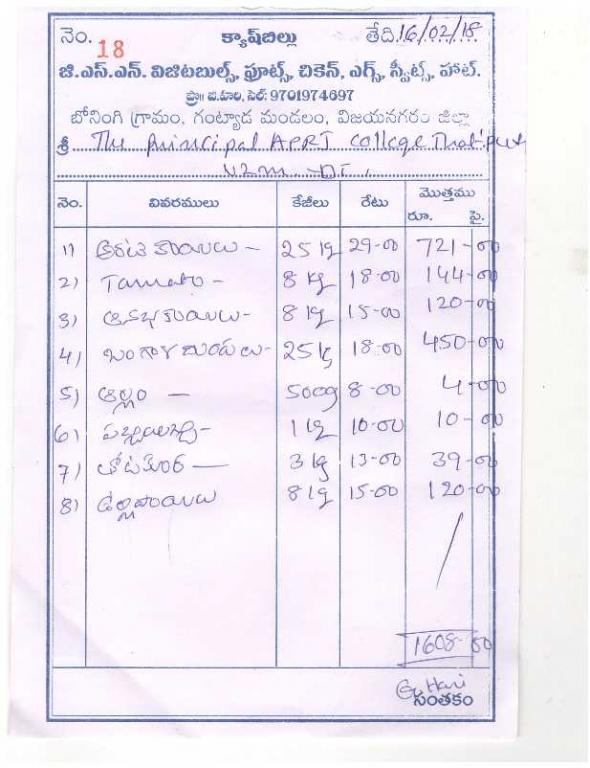 నెం. 18 క్యాష్‌బిల్లు తేది.16/02/18
జి.ఎస్.ఎన్. విజిటబుల్స్, ఫ్రూట్స్, చికెన్, ఎగ్స్, స్వీట్స్, హాట్.
ప్రొ॥ జి.హరి, సెల్: 9701974697
బోనింగి గ్రామం, గంట్యాడ మండలం, విజయనగరం జిల్లా
శ్రీ The principal APRJ college
VZM - DT,
నెం. వివరములు కేజీలు రేటు మొత్తము
రూ. పై.
1) అరటి కాయలు - 25 kg 29-00 721-00
2) Tamato - 8 kg 18-00 144-00
3) ఆనబకాయలు- 8 kg 15-00 120-00
4) బంగాళదుంపలు- 25 kg 18-00 450-00
5) అల్లం - 500g 8-00 4-00
6) పచ్చిమిర్చి- 1 kg 10-00 10-00
7) తోటకూర - 3 kg 13-00 39-00
8) ఉల్లిపాయలు 8 kg 15-00 120-00
1608-00
G Hari
సంతకం